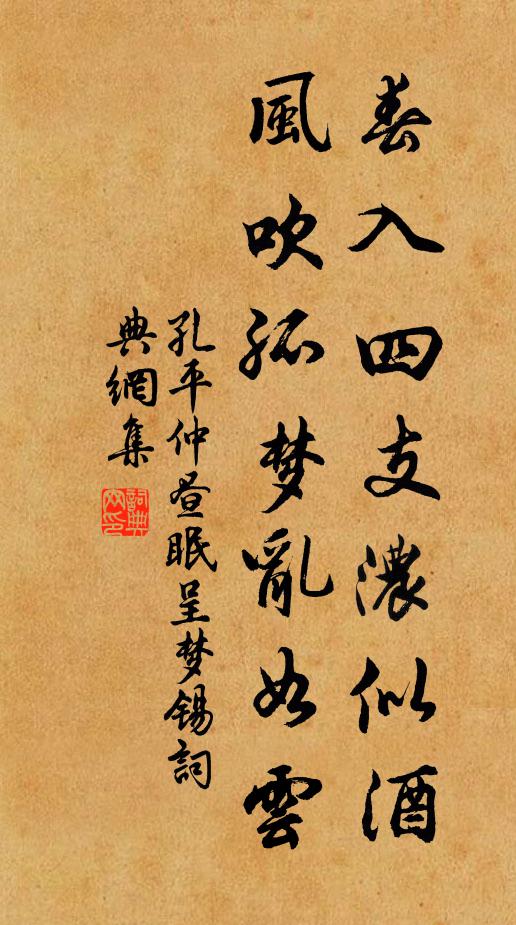 春入四支濃似酒
風吹孤梦亂如雲
孔平仲昼眠呈梦锡詞
典網集
詞典網印